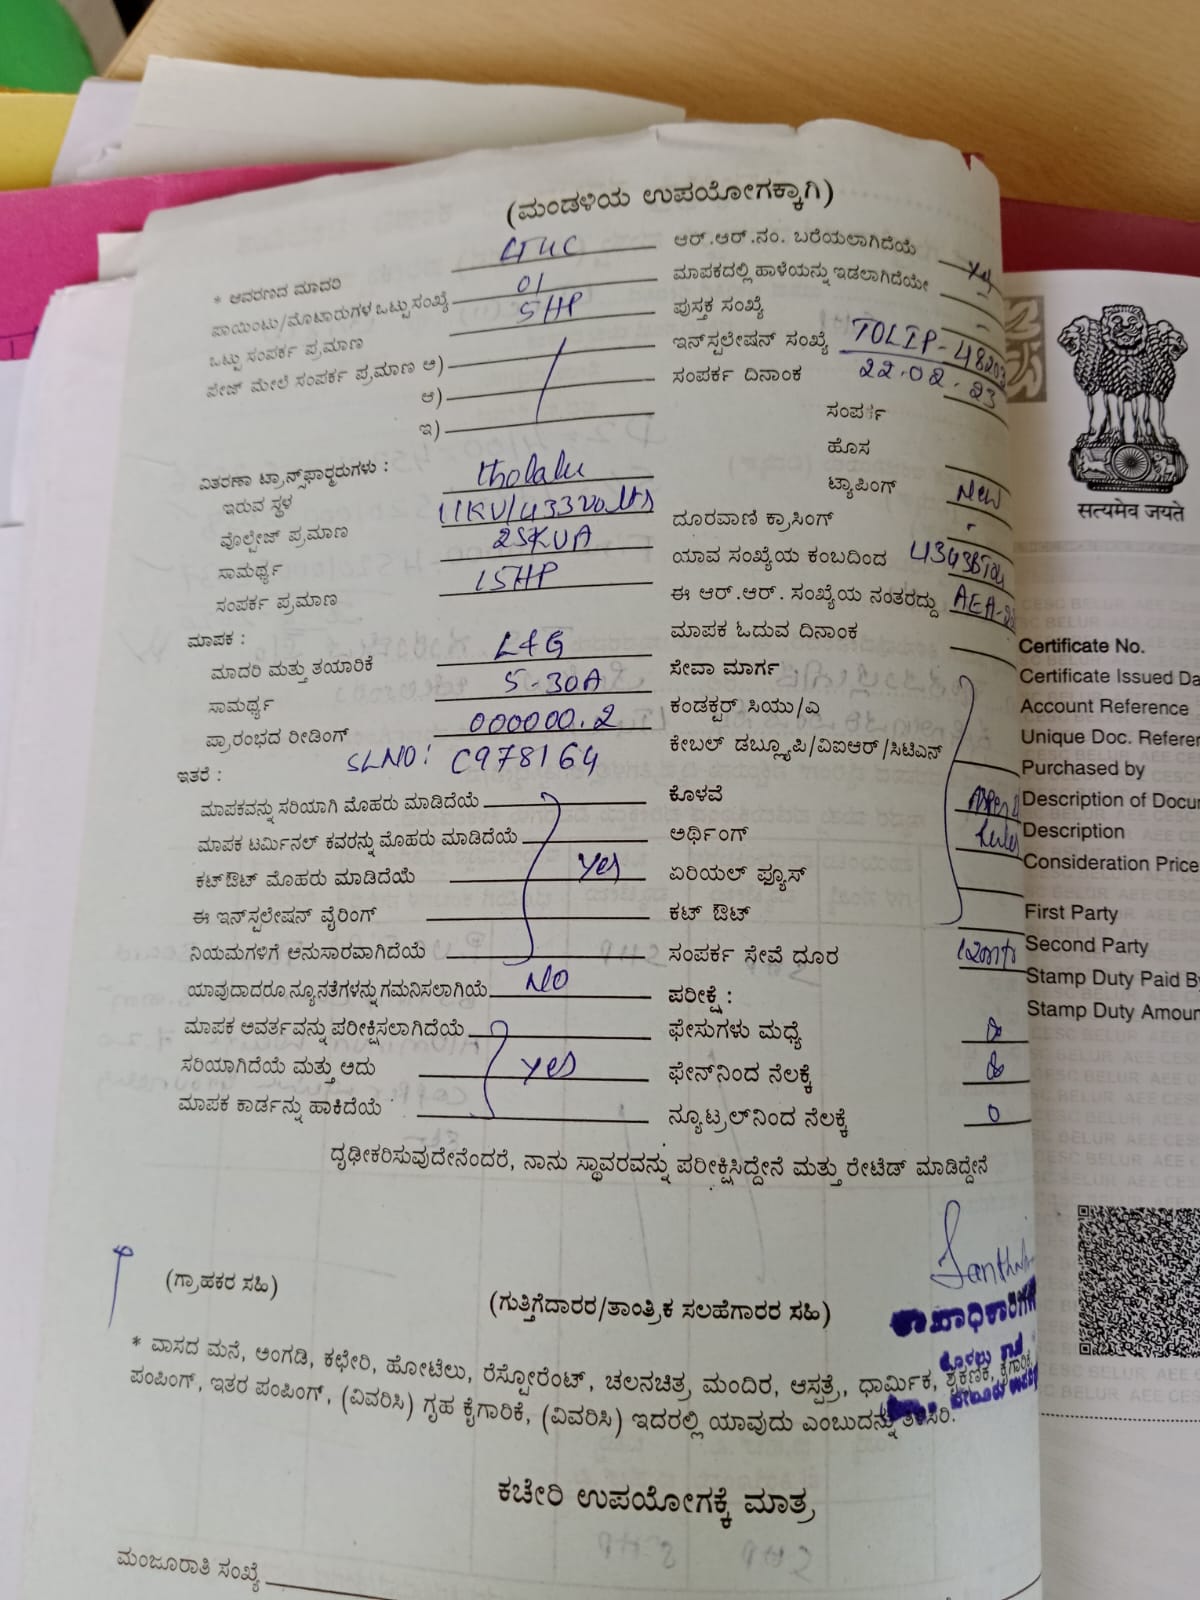 (ಮಂಡಳಿಯ ಉಪಯೋಗಕ್ಕಾಗಿ)
* ಆವರಣದ ಮಾದರಿ
ಆರ್.ಆರ್.ನಂ. ಬರೆಯಲಾಗಿದೆಯೆ Yes
ಪಾಯಿಂಟು/ಮೊಟಾರುಗಳ ಒಟ್ಟು ಸಂಖ್ಯೆ 01
ಮಾಪಕದಲ್ಲಿ ಹಾಳೆಯನ್ನು ಇಡಲಾಗಿದೆಯೇ
ಒಟ್ಟು ಸಂಪರ್ಕ ಪ್ರಮಾಣ 5HP
ಪುಸ್ತಕ ಸಂಖ್ಯೆ -
ಪೇಜ್ ಮೇಲೆ ಸಂಪರ್ಕ ಪ್ರಮಾಣ ಆ)
ಇನ್‌ಸ್ಪಲೇಷನ್ ಸಂಖ್ಯೆ TOLIP-48203
ಆ)
ಸಂಪರ್ಕ ದಿನಾಂಕ 22.02.23
ಇ)
ಸಂಪರ್ಕ
ಹೊಸ
ವಿತರಣಾ ಟ್ರಾನ್ಸ್‌ಫಾರ್‍ಮರುಗಳು :
ಇರುವ ಸ್ಥಳ tholalu
ಟ್ಯಾಪಿಂಗ್ New
ವೊಲ್ಟೇಜ್ ಪ್ರಮಾಣ 11KV/433Volts
ದೂರವಾಣಿ ಕ್ರಾಸಿಂಗ್ -
ಸಾಮರ್ಥ್ಯ 25KVA
ಯಾವ ಸಂಖ್ಯೆಯ ಕಂಬದಿಂದ
ಸಂಪರ್ಕ ಪ್ರಮಾಣ 15HP
ಈ ಆರ್.ಆರ್. ಸಂಖ್ಯೆಯ ನಂತರದ್ದು
ಮಾಪಕ :
ಮಾಪಕ ಓದುವ ದಿನಾಂಕ
ಮಾದರಿ ಮತ್ತು ತಯಾರಿಕೆ L&G
ಸೇವಾ ಮಾರ್ಗ
ಸಾಮರ್ಥ್ಯ 5-30A
ಕಂಡಕ್ಟರ್ ಸಿಯು/ಎ
ಪ್ರಾರಂಭದ ರೀಡಿಂಗ್ 000000.2
ಕೇಬಲ್ ಡಬ್ಲ್ಯೂಪಿ/ವಿಐಆರ್/ಸಿಟಿಎನ್
SLNO: C978164
ಇತರೆ :
ಮಾಪಕವನ್ನು ಸರಿಯಾಗಿ ಮೊಹರು ಮಾಡಿದೆಯೆ
ಕೊಳವೆ
ಮಾಪಕ ಟರ್ಮಿನಲ್ ಕವರನ್ನು ಮೊಹರು ಮಾಡಿದೆಯೆ
ಅರ್ಥಿಂಗ್
ಕಟ್‌ಔಟ್ ಮೊಹರು ಮಾಡಿದೆಯೆ Yes
ಏರಿಯಲ್ ಫ್ಯೂಸ್
ಈ ಇನ್‌ಸ್ಪಲೇಷನ್ ವೈರಿಂಗ್
ಕಟ್ ಔಟ್
ನಿಯಮಗಳಿಗೆ ಆನುಸಾರವಾಗಿದೆಯೆ
ಸಂಪರ್ಕ ಸೇವೆ ಧೂರ
ಯಾವುದಾದರೂ ನ್ಯೂನತೆಗಳನ್ನು ಗಮನಿಸಲಾಗಿಯೆ NO
ಪರೀಕ್ಷೆ :
ಮಾಪಕ ಆವರ್ತವನ್ನು ಪರೀಕ್ಷಿಸಲಾಗಿದೆಯೆ
ಫೇಸುಗಳು ಮಧ್ಯೆ
ಸರಿಯಾಗಿದೆಯೆ ಮತ್ತು ಆದು yes
ಫೇನ್‌ನಿಂದ ನೆಲಕ್ಕೆ
ಮಾಪಕ ಕಾರ್ಡನ್ನು ಹಾಕಿದೆಯೆ
ನ್ಯೂಟ್ರಲ್‌ನಿಂದ ನೆಲಕ್ಕೆ 0
ದೃಢೀಕರಿಸುವುದೇನೆಂದರೆ, ನಾನು ಸ್ಥಾವರವನ್ನು ಪರೀಕ್ಷಿಸಿದ್ದೇನೆ ಮತ್ತು ರೇಟೆಡ್ ಮಾಡಿದ್ದೇನೆ
(ಗ್ರಾಹಕರ ಸಹಿ)
(ಗುತ್ತಿಗೆದಾರರ/ತಾಂತ್ರಿಕ ಸಲಹೆಗಾರರ ಸಹಿ)
* ವಾಸದ ಮನೆ, ಅಂಗಡಿ, ಕಛೇರಿ, ಹೋಟೆಲು, ರೆಸ್ಟೋರೆಂಟ್, ಚಲನಚಿತ್ರ ಮಂದಿರ, ಆಸ್ಪತ್ರೆ, ಧಾರ್ಮಿಕ, ಶೈಕ್ಷಣಿಕ, ಕೈಗಾರಿಕೆ,
ಪಂಪಿಂಗ್, ಇತರ ಪಂಪಿಂಗ್, (ವಿವರಿಸಿ) ಗೃಹ ಕೈಗಾರಿಕೆ, (ವಿವರಿಸಿ) ಇದರಲ್ಲಿ ಯಾವುದು ಎಂಬುದನ್ನು ತಿಳಿಸಿರಿ.
ಕಚೇರಿ ಉಪಯೋಗಕ್ಕೆ ಮಾತ್ರ
ಮಂಜೂರಾತಿ ಸಂಖ್ಯೆ
सत्यमेव जयते
Certificate No.
Certificate Issued Da
Account Reference
Unique Doc. Referen
Purchased by
Description of Docu
Description
Consideration Price
First Party
Second Party
Stamp Duty Paid By
Stamp Duty Amoun